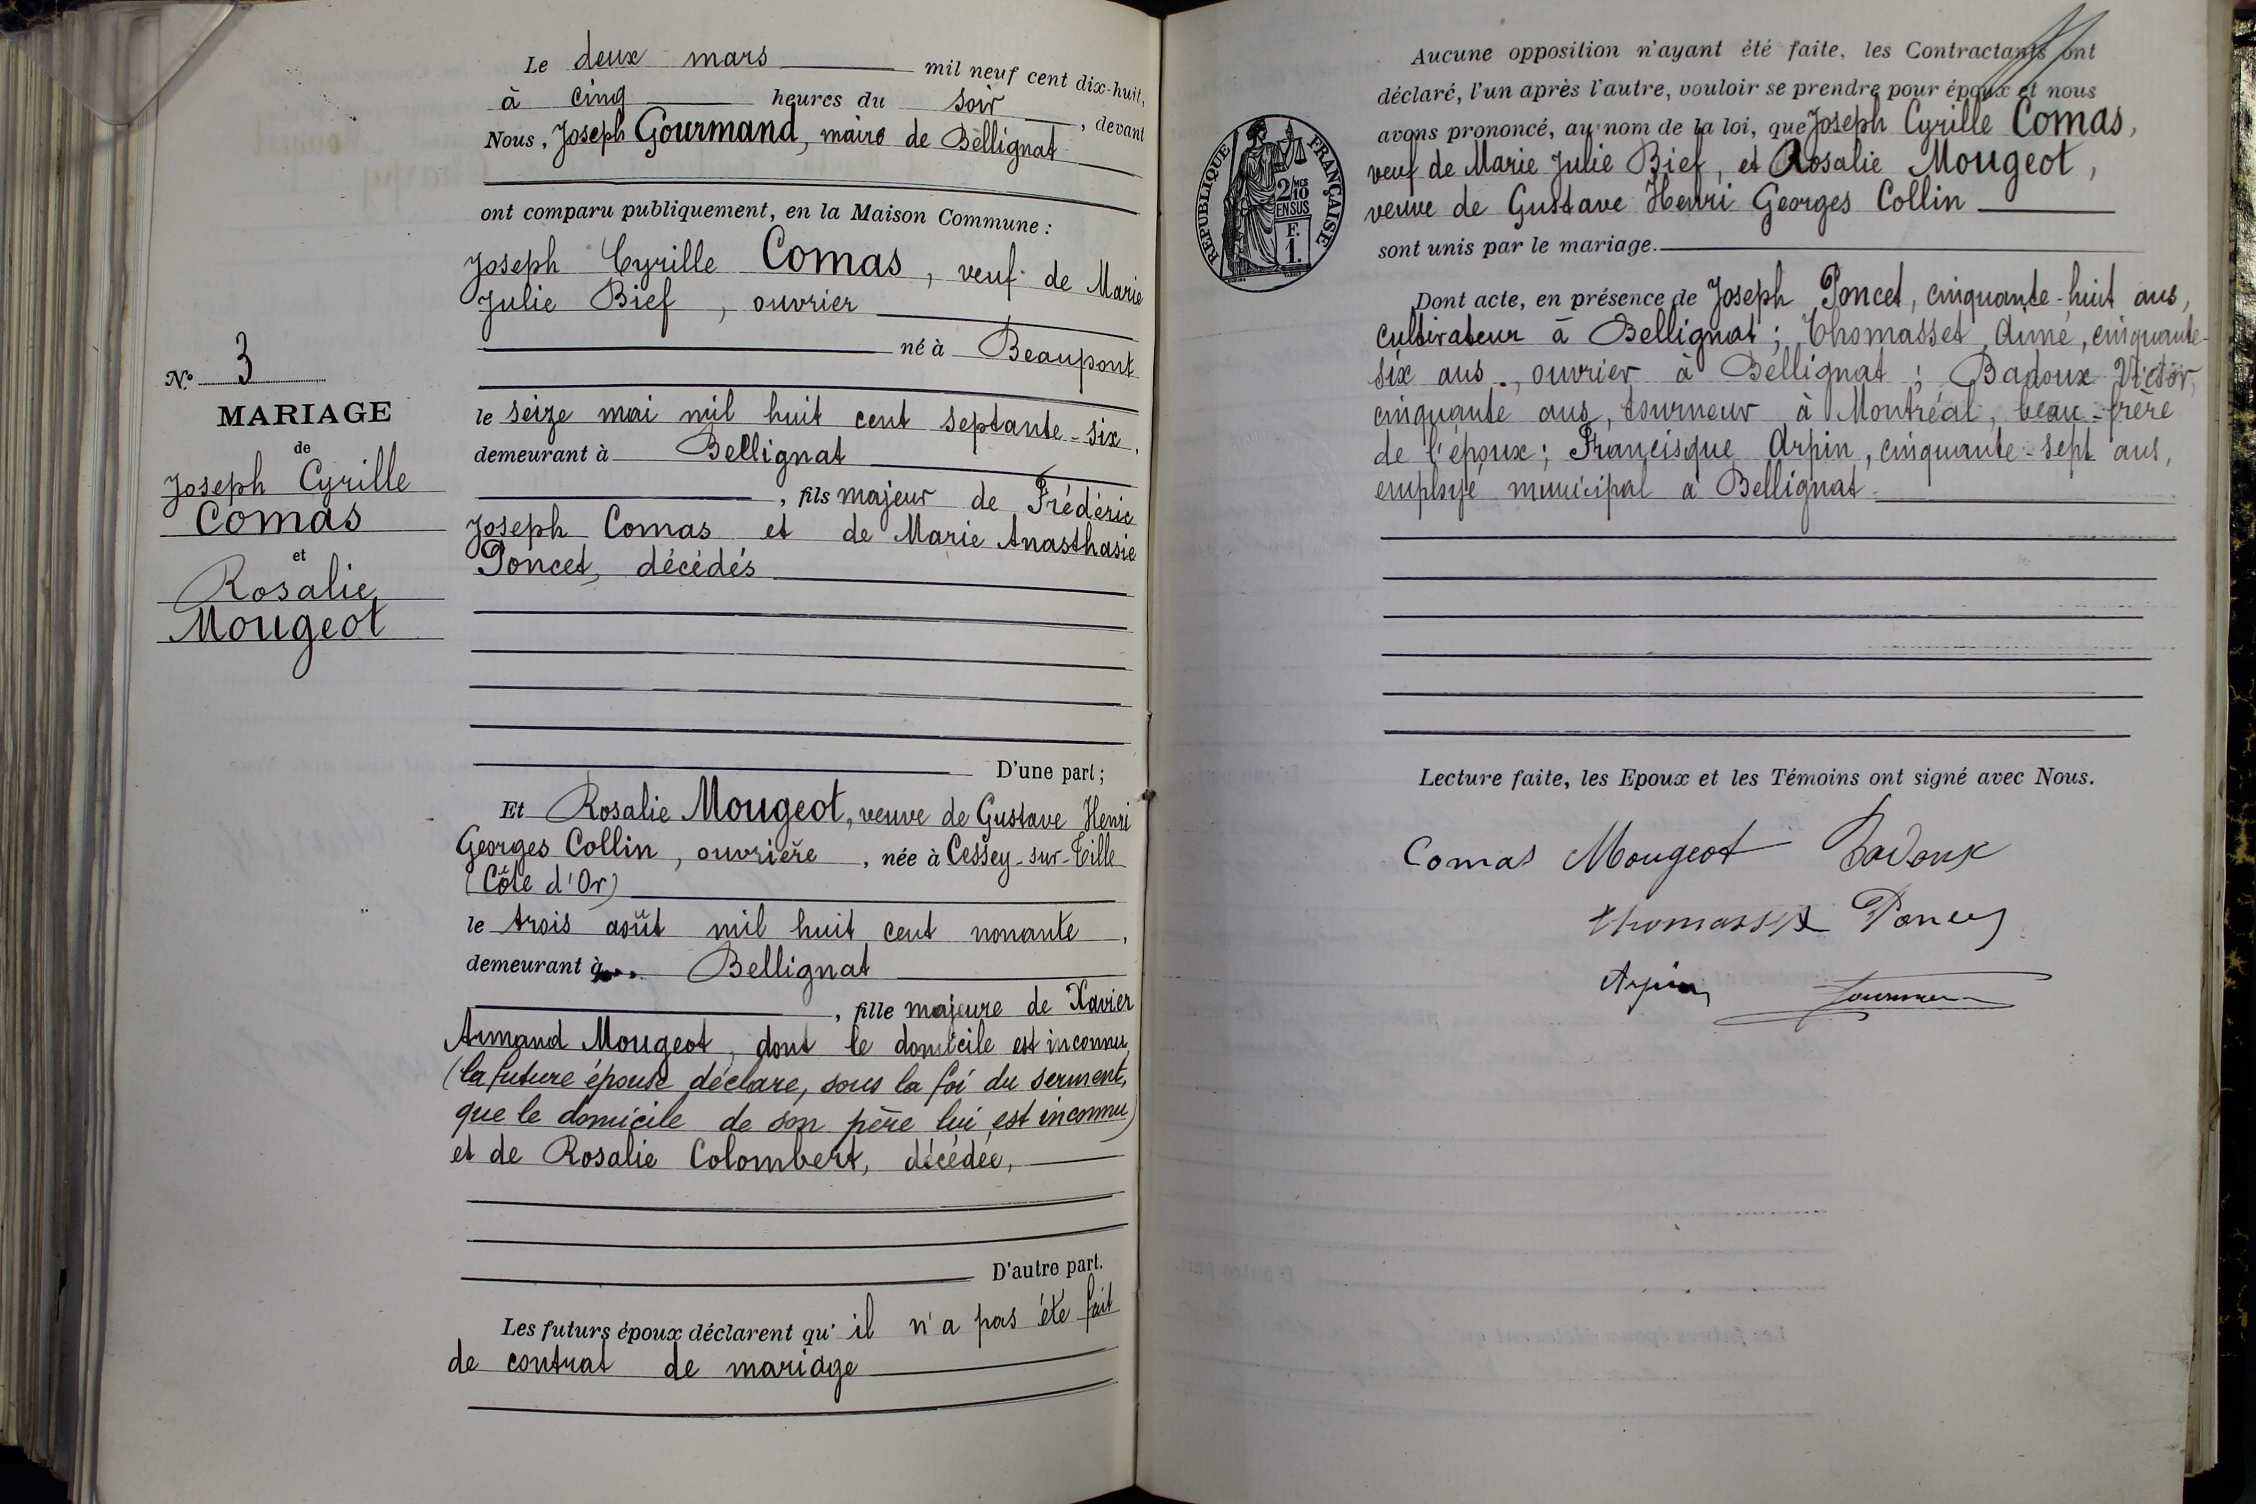 N.o 3
MARIAGE
de
Joseph Cyrille
Comas
et
Rosalie
Mougeot
Le deux mars mil neuf cent dix-huit,
à cinq heures du soir, devant
Nous, Joseph Gourmand, maire de Bellignat
ont comparu publiquement, en la Maison Commune :
Joseph Cyrille Comas, veuf de Marie
Julie Bief, ouvrier
né à Beaupont
le seize mai mil huit cent septante-six,
demeurant à Bellignat
, fils majeur de Frédéric
Joseph Comas et de Marie Anasthasie
Poncet, décédés
D'une part ;
Et Rosalie Mougeot, veuve de Gustave Henri
Georges Collin, ouvrière, née à Cessey-sur-Tille
(Côte d'Or)
le trois août mil huit cent nonante,
demeurant à Bellignat
, fille majeure de Xavier
Armand Mougeot, dont le domicile est inconnu,
(la future épouse déclare, sous la foi du serment,
que le domicile de son père lui est inconnu)
et de Rosalie Colombert, décédée,
D'autre part.
Les futurs époux déclarent qu'il n'a pas été fait
de contrat de mariage
Aucune opposition n'ayant été faite, les Contractants ont
déclaré, l'un après l'autre, vouloir se prendre pour époux et nous
avons prononcé, au nom de la loi, que Joseph Cyrille Comas,
veuf de Marie Julie Bief, et Rosalie Mougeot,
veuve de Gustave Henri Georges Collin
sont unis par le mariage.
RÉPUBLIQUE FRANÇAISE
2/MES
10
EN SUS
F.
1.
Dont acte, en présence de Joseph Poncet, cinquante-huit ans,
cultivateur à Bellignat ; Thomasset Aimé, cinquante-
six ans, ouvrier à Bellignat ; Badoux Victor,
cinquante ans, tourneur à Montréal, beau-frère
de l'époux ; Francisque Arpin, cinquante-sept ans,
employé municipal à Bellignat.
Lecture faite, les Epoux et les Témoins ont signé avec Nous.
Comas Mougeot Badoux
Thomasset Poncet
Arpin Gourmand